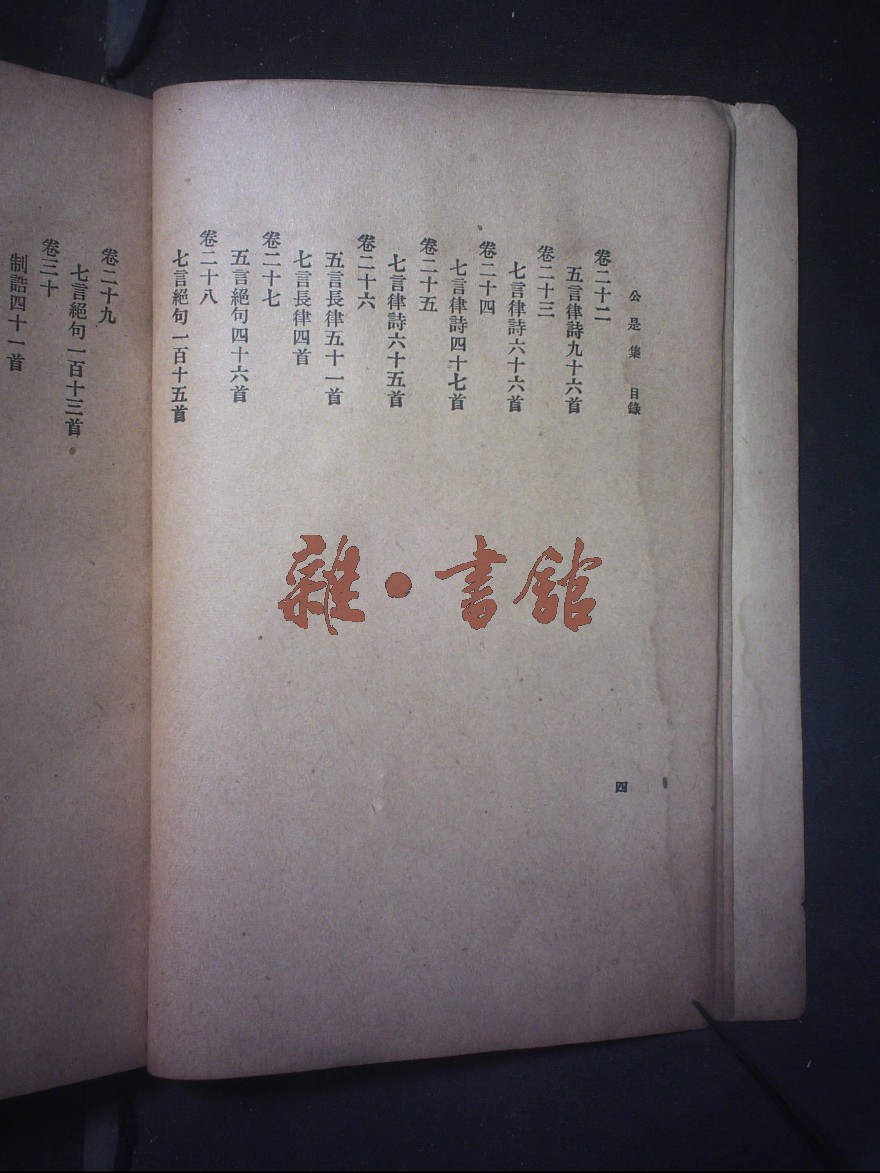 公是集 目錄
卷二十二
五言律詩九十六首
卷二十三
七言律詩六十六首
卷二十四
七言律詩四十七首
卷二十五
七言律詩六十五首
卷二十六
五言長律五十一首
七言長律四首
卷二十七
五言絕句四十六首
卷二十八
七言絕句一百十五首
四
卷二十九
七言絕句一百十三首
卷三十
制誥四十一首
雜·書館